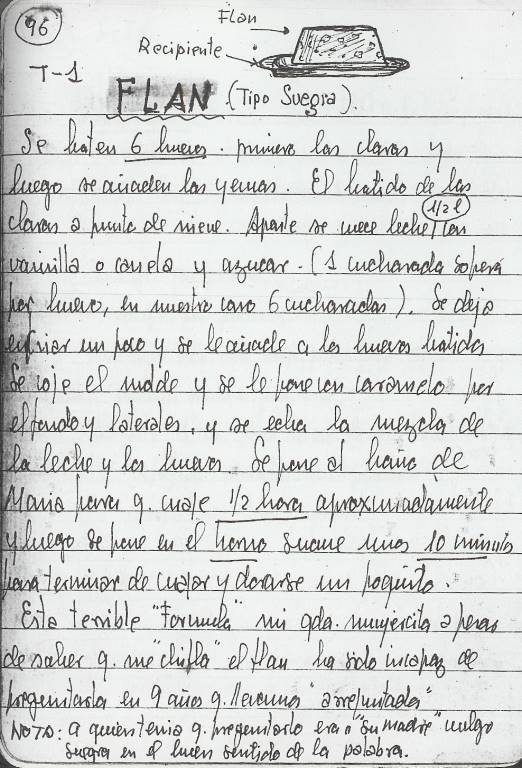 96
Flan
Recipiente
T-1
FLAN (Tipo Suegra).
Se baten 6 huevos. primero las claras y
luego se añaden las yemas. El batido de las
claras a punto de nieve. Aparte se cuece leche 1/2 l con
vainilla o canela y azucar. (1 cucharada sopera
por huevo, en nuestro caso 6 cucharadas). Se deja
enfriar un poco y se le añade a los huevos batidos
Se coje el molde y se le pone con caramelo por
el fondo y laterales, y se echa la mezcla de
la leche y los huevos. Se pone al baño de
Maria para q. cuaje 1/2 hora aproximadamente
y luego se pone en el horno suave unos 10 minutos
para terminar de cuajar y dorarse un poquito.
Esta terrible "Formula" mi qda. mujercita a pesar
de saber q. me "chifla" el flan ha sido incapaz de
preguntarla en 9 años q. llevamos "arrejuntados"
NOTA: a quien tenia q. preguntarlo era a "su madre" vulgo
suegra en el buen sentido de la palabra.